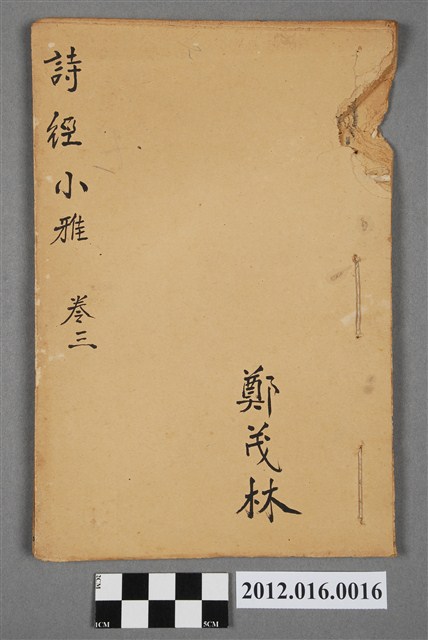 詩徑小雅 卷三
鄭茂林
2CM
1CM
5CM
2012.016.0016